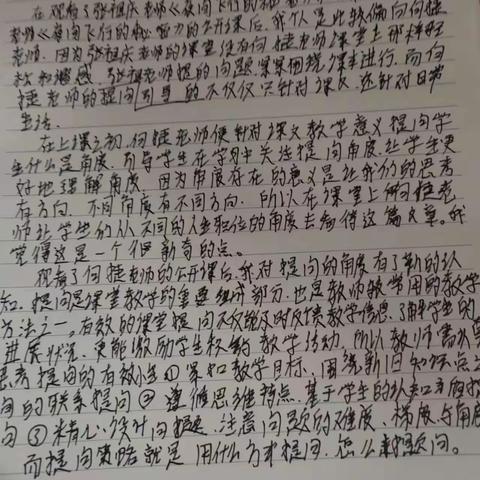 在观看了张祖庆老师《夜间飞行的秘密》
老师《夜间飞行的秘密》的公开课后,我个人是比较偏向何捷
老师,因为张祖庆老师的课堂没有何捷老师课堂上那样轻
松和幽默,张祖庆老师提的问题紧紧围绕课本进行,而何
捷老师的提问引导的不仅仅只针对课文,还针对日常
生活。
在上课之初,何捷老师便针对课文教学意义提问学
生什么是角度,引导学生在学习中关注提问角度,让学生更
好地理解角度,因为角度存在的意义是让我们的思考
有方向,不同角度有不同方向,所以在课堂上何捷老
师让学生们从不同的人生职位的角度去看待这篇文章。我
觉得这是一个很新奇的点。
观看了何捷老师的公开课后,我对提问的角度有了新的认
知,提问是课堂教学的重要组成部分,也是教师最常用的教学
方法之一。有效的课堂提问不仅能及时反馈教学信息,了解学生的
进展状况,更能激励学生积极教学活动,所以教师需认真
思考提问的有效性①紧扣教学目标,围绕新旧知识点之
间的联系提问②遵循思维特点,基于学生的认知方面提
问③精心设计问题,注意问题的难度、梯度与角度
而提问策略就是用什么方式提问,怎么来提问。